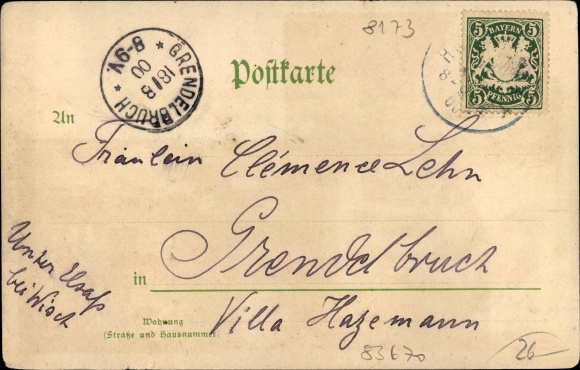 8173
5 BAYERN 5
5 PFENNIG 5
* GRENDELBRUCH *
18/8
00
8-9V.
Postkarte
An
Fräulein Clémence Lehn
in Grendelbruch
Unter Elsaß
bei Wisch
Wohnung
(Straße und Hausnummer)
Villa Hazemann
83670
26-